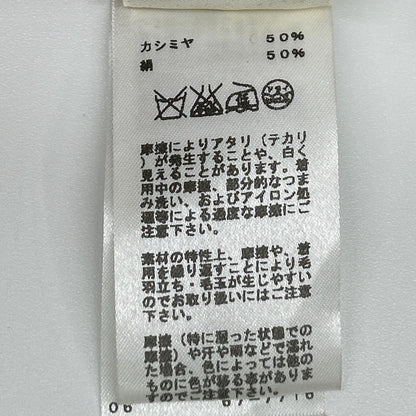 カシミヤ 50%
絹 50%
摩擦によりアタリ（テカリ
）が発生することや、白く
見えることがあります。着
用中の摩擦、部分的なつま
み洗い、およびアイロン処
理等による過度な摩擦にご
注意下さい。
素材の特性上、摩擦や、着
用を繰り返すことにより毛
羽立ち・毛玉が生じやすい
のでお取り扱いにはご注意
下さい。
摩擦（特に湿った状態での
摩擦）や汗や雨などで濡れ
た場合、色によっては他の
ものに色が移る事がありま
すのでご注意下さい。
06